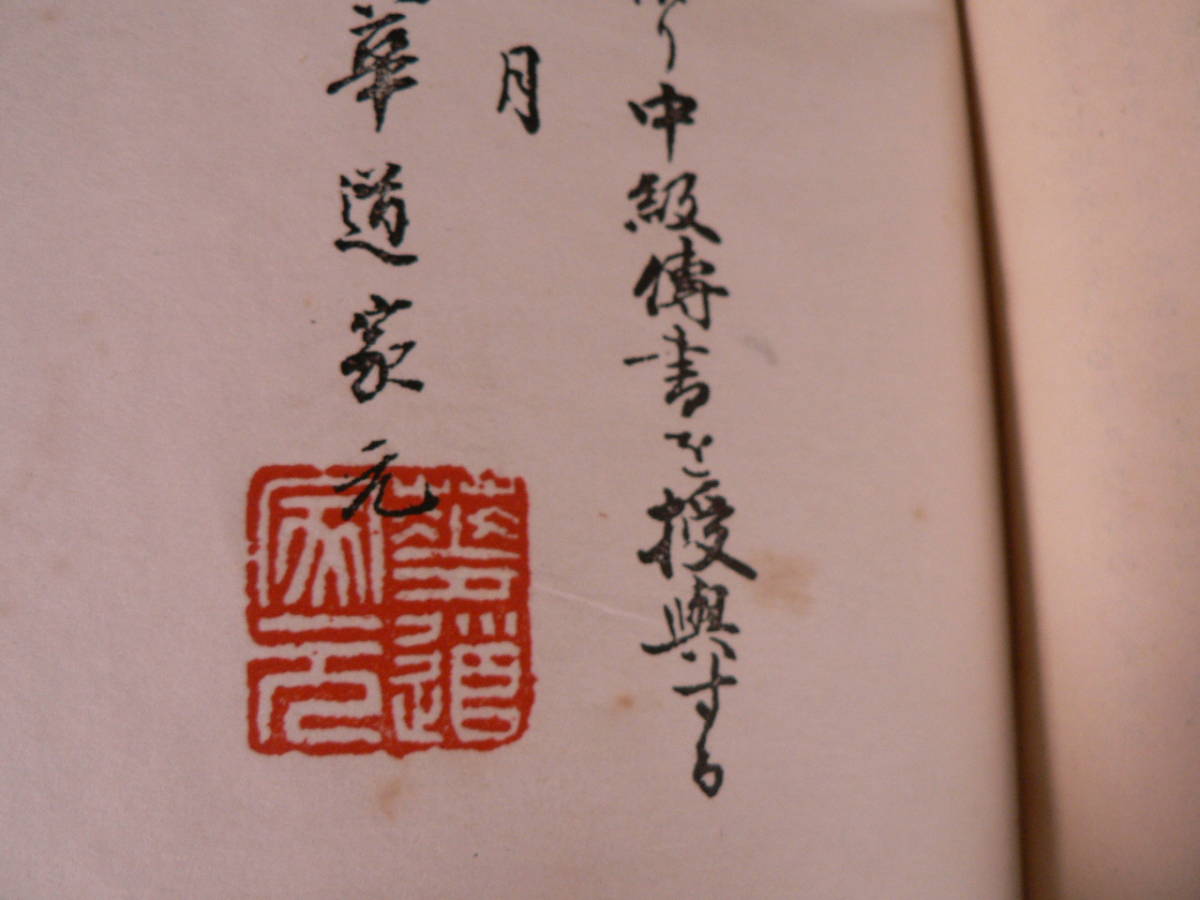 り中級傳書を授與する
月
華道家元
華道
家元